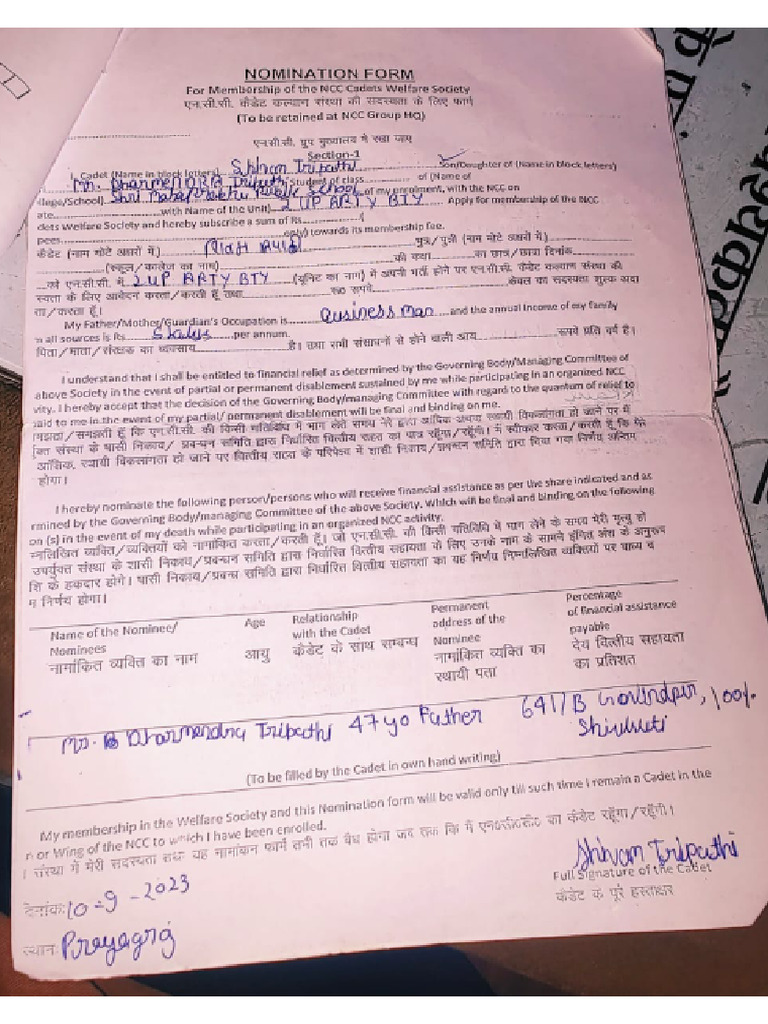 NOMINATION FORM
For Membership of the NCC Cadets Welfare Society
एन.सी.सी. कैडेट कल्याण संस्था की सदस्यता के लिए फार्म
(To be retained at NCC Group HQ)
एन.सी.सी. ग्रुप मुख्यालय में रखा जाए
Section-1
I, Cadet (Name in block letters) Shivam Tripathi Son/Daughter of (Name in block letters)
Mr. Dharmendra Tripathi Student of class of (Name of
llege/School) Shri Mahaprabhu Public School of my enrolment, with the NCC on
ate with Name of the Unit) 2 UP ARTY BTY Apply for membership of the NCC
dets Welfare Society and hereby subscribe a sum of Rs (
pees only) towards its membership fee.
कैडेट (नाम मोटे अक्षरों में) पुत्र/पुत्री (नाम मोटे अक्षरों में)
(स्कूल/कालेज का नाम) की कक्षा का छात्र/छात्रा दिनांक
को एन.सी.सी. में 2 UP ARTY BTY (यूनिट का नाम) में अपनी भर्ती होने पर एन.सी.सी. कैडेट कल्याण संस्था की
स्यता के लिए आवेदन करता/करती हूँ तथा रू0 रूपये केवल का सदस्यता शुल्क अदा
ता/करता हूँ।
My Father/Mother/Guardian's Occupation is Business Man and the annual Income of my family
n all sources is Rs per annum.
पिता/माता/संरक्षक का व्यवसाय है। तथा सभी संसाधनों से होने वाली आय रूपये प्रति वर्ष है।
I understand that I shall be entitled to financial relief as determined by the Governing Body/Managing Committee of
above Society in the event of partial or permanent disablement sustained by me while participating in an organized NCC
vity. I hereby accept that the decision of the Governing Body/managing Committee with regard to the quantum of relief to
said to me in the event of my partial/ permanent disablement will be final and binding on me.
मझता/समझती हूँ कि एन.सी.सी. की किसी गतिविधि में भाग लेते समय मेरे द्वारा आंशिक अथवा स्थायी विकलांगता हो जाने पर मैं
क्त संस्था के शासी निकाय/ प्रबन्धन समिति द्वारा निर्धारित वित्तीय राहत का पात्र रहूँगा/रहूँगी। मैं स्वीकार करता/करती हूँ कि मेरे
आंशिक, स्थायी विकलांगता हो जाने पर वित्तीय राहत के परिपेक्ष्य में शासी निकाय/प्रबन्धन समिति द्वारा लिया गया निर्णय अन्तिम
होगा।
I hereby nominate the following person/persons who will receive financial assistance as per the share indicated and as
rmined by the Governing Body/managing Committee of the above Society. Which will be final and binding on the following
on (s) in the event of my death while participating in an organized NCC activity.
म्नलिखित व्यक्ति/व्यक्तियों को नामांकित करता/करती हूँ। जो एन.सी.सी. की किसी गतिविधि में भाग लेने के समय मेरी मृत्यु हो
उपर्युक्त संस्था के शासी निकाय/प्रबन्धन समिति द्वारा निर्धारित वित्तीय सहायता के लिए उनके नाम के सामने इंगित अंश के अनुरूप
शि के हकदार होगे। शासी निकाय/प्रबन्ध समिति द्वारा निर्धारित वित्तीय सहायता का यह निर्णय निम्नलिखित व्यक्तियों पर बाध्य व
म निर्णय होगा।
Name of the Nominee/ Nominees
नामांकित व्यक्ति का नाम
Age
आयु
Relationship with the Cadet
कैडेट के साथ सम्बन्ध
Permanent address of the Nominee
नामांकित व्यक्ति का स्थायी पता
Percentage of financial assistance payable
देय वित्तीय सहायता का प्रतिशत
Mr. Dharmendra Tripathi 47 yo Father 6417B Govindpur, 100%
Shivkuti
(To be filled by the Cadet in own hand writing)
My membership in the Welfare Society and this Nomination form will be valid only till such time I remain a Cadet in the
n or Wing of the NCC to which I have been enrolled.
संस्था में मेरी सदस्यता तथा यह नामांकन फार्म तभी तक वैध होगा जब तक कि मैं एन0सी0सी0 का कैडेट रहूँगा/रहूँगी।
Shivam Tripathi
Full Signature of the Cadet
कैडेट के पूरे हस्ताक्षर
देनांक: 10-9-2023
स्थान: Prayagraj